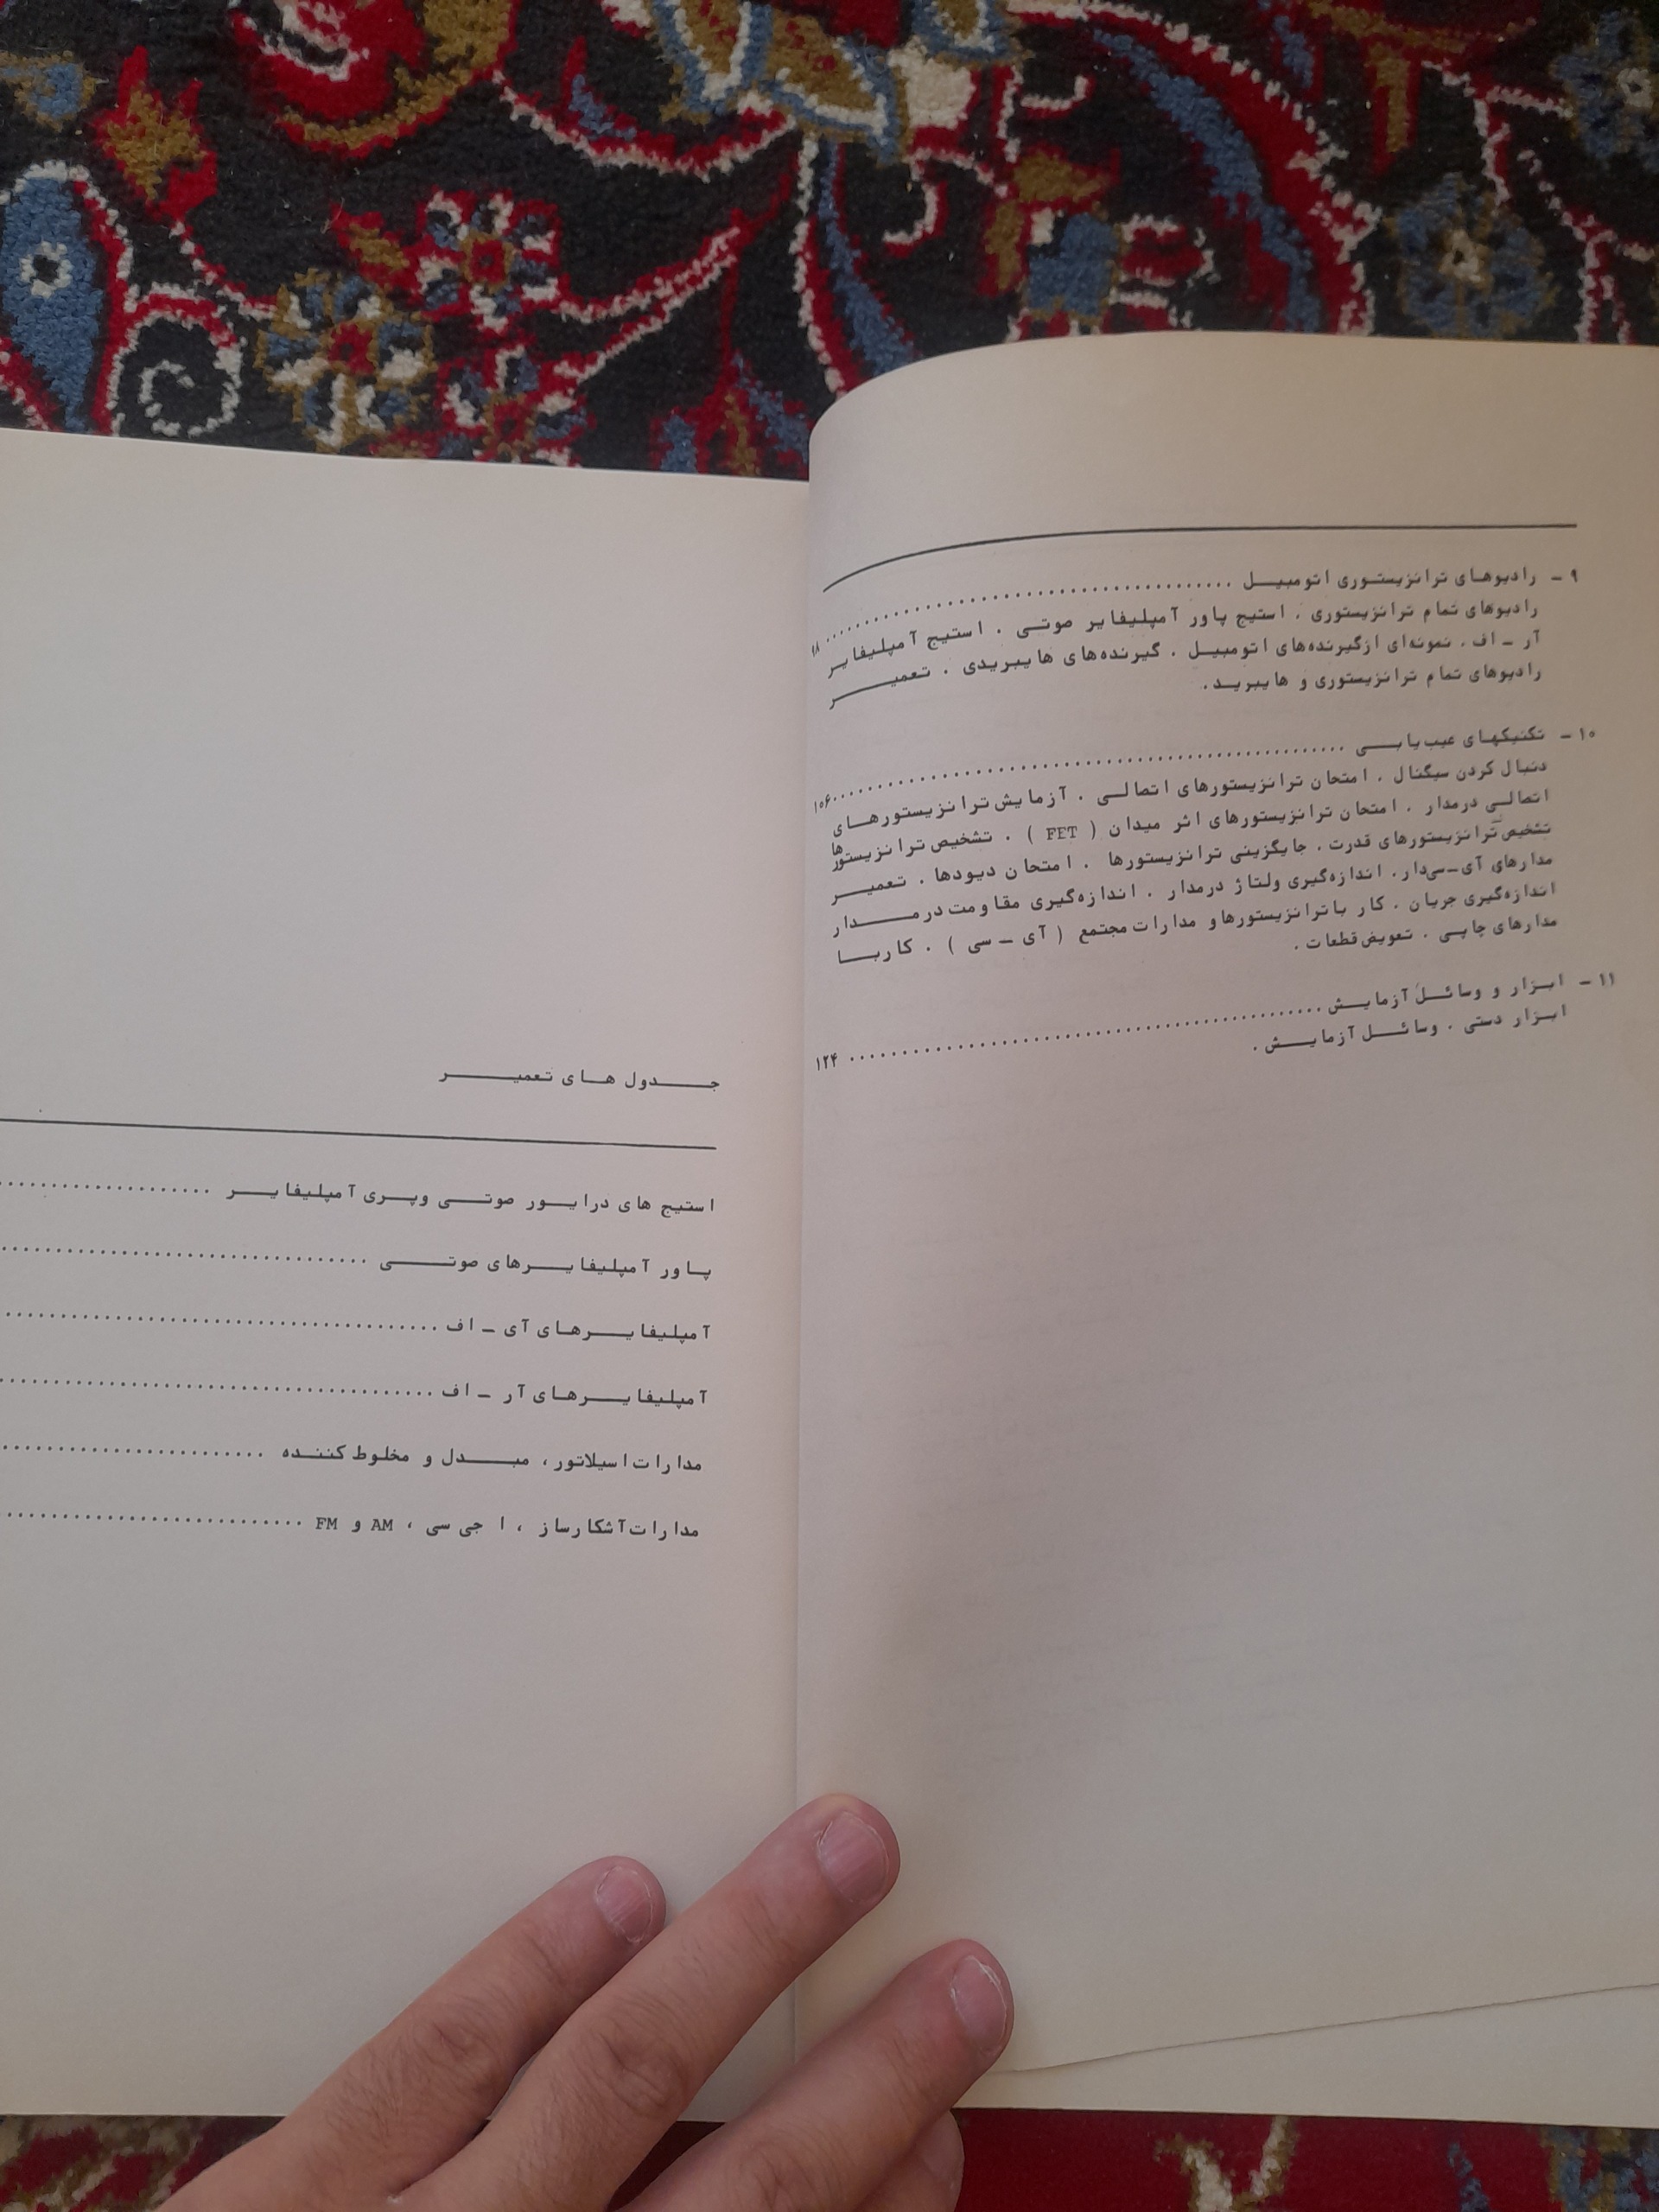 ۹ - رادیوهای ترانزیستوری اتومبیل ........................................
رادیوهای تمام ترانزیستوری . استیج پاور آمپلیفایر صوتی . استیج آمپلیفایر
آر - اف . نمونه‌ای ازگیرنده‌های اتومبیل . گیرنده‌های هایبریدی . تعمیر
رادیوهای تمام ترانزیستوری و هایبرید .
۱۰ - تکنیکهای عیب‌یابی ........................................ ۱۰۶
دنبال کردن سیگنال . امتحان ترانزیستورهای اتصالی . آزمایش ترانزیستورهای
اتصالی درمدار . امتحان ترانزیستورهای اثر میدان ( FET ) . تشخیص ترانزیستورها
تشخیص ترانزیستورهای قدرت . جایگزینی ترانزیستورها . امتحان دیودها . تعمیر
مدارهای آی-سی‌دار . اندازه‌گیری ولتاژ درمدار . اندازه‌گیری مقاومت درمدار
اندازه‌گیری جریان . کار باترانزیستورها و مدارات مجتمع ( آی - سی ) . کاربا
مدارهای چاپی . تعویض قطعات .
۱۱ - ابزار و وسائل آزمایش ........................................ ۱۲۴
ابزار دستی . وسائل آزمایش .
جدول های تعمیر
استیج های درایور صوتی وپری آمپلیفایر ....................
پاور آمپلیفایرهای صوتی ..................................
آمپلیفایرهای آی - اف ........................................
آمپلیفایرهای آر - اف ........................................
مدارات اسیلاتور ، مبدل و مخلوط کننده .........................
مدارات آشکارساز ، ا جی سی ، AM و FM ............................